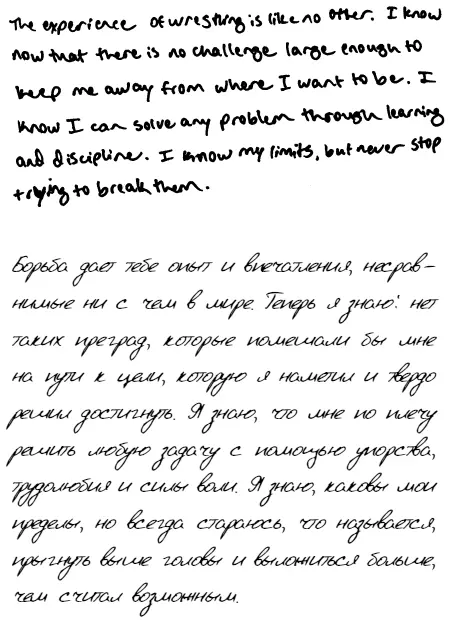 The experience of wrestling is like no other. I know
now that there is no challenge large enough to
keep me away from where I want to be. I
know I can solve any problem through learning
and discipline. I know my limits, but never stop
trying to break them.
Борьба дает тебе опыт и впечатления, несрав-
нимые ни с чем в мире. Теперь я знаю: нет
таких преград, которые помешали бы мне
на пути к цели, которую я наметил и твердо
решил достигнуть. Я знаю, что мне по плечу
решить любую задачу с помощью упорства,
трудолюбия и силы воли. Я знаю, каковы мои
пределы, но всегда стараюсь, что называется,
прыгнуть выше головы и выложиться больше,
чем считал возможным.